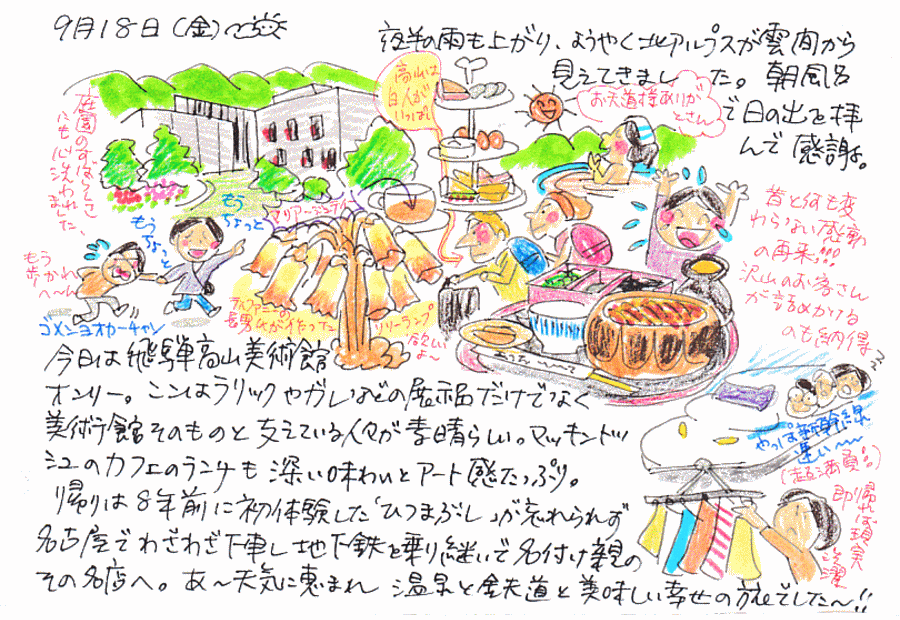 9月18日(金)
夜半の雨も上がり、ようやく北アルプスが雲間から
見えてきました。朝風呂
で日の出を拝
んで感謝。
お天道様ありが
とさん
高山は
白人が
いっぱい
庭園のすばらしさ
にも心洗われました、
もう
歩かれ
へ〜ん
もう
ちょっと
もう
ちょっと
ゴメンヨオカーチャン
マリアージュ
ティファニーの
長男が作った
リリーランプ
昔と何も変
わらない感動
の再来!!!
沢山のお客さん
が詰めかける
のも納得
今日は飛騨高山美術館
オンリー。ここはラリックやガレなどの展示品だけでなく
美術館そのものと支えている人々が素晴らしい。マッキントッ
シュのカフェのランチも深い味わいとアート感たっぷり。
帰りは8年前に初体験した「ひつまぶし」が忘れられず
名古屋でわざわざ下車し地下鉄を乗り継いで名付け親の
その名店へ。あ〜天気に恵まれ 温泉と鉄道と美味しい幸せの旅でした〜!!
やっぱ新幹線
速い〜
(超満員)
帰れば現実
即洗濯